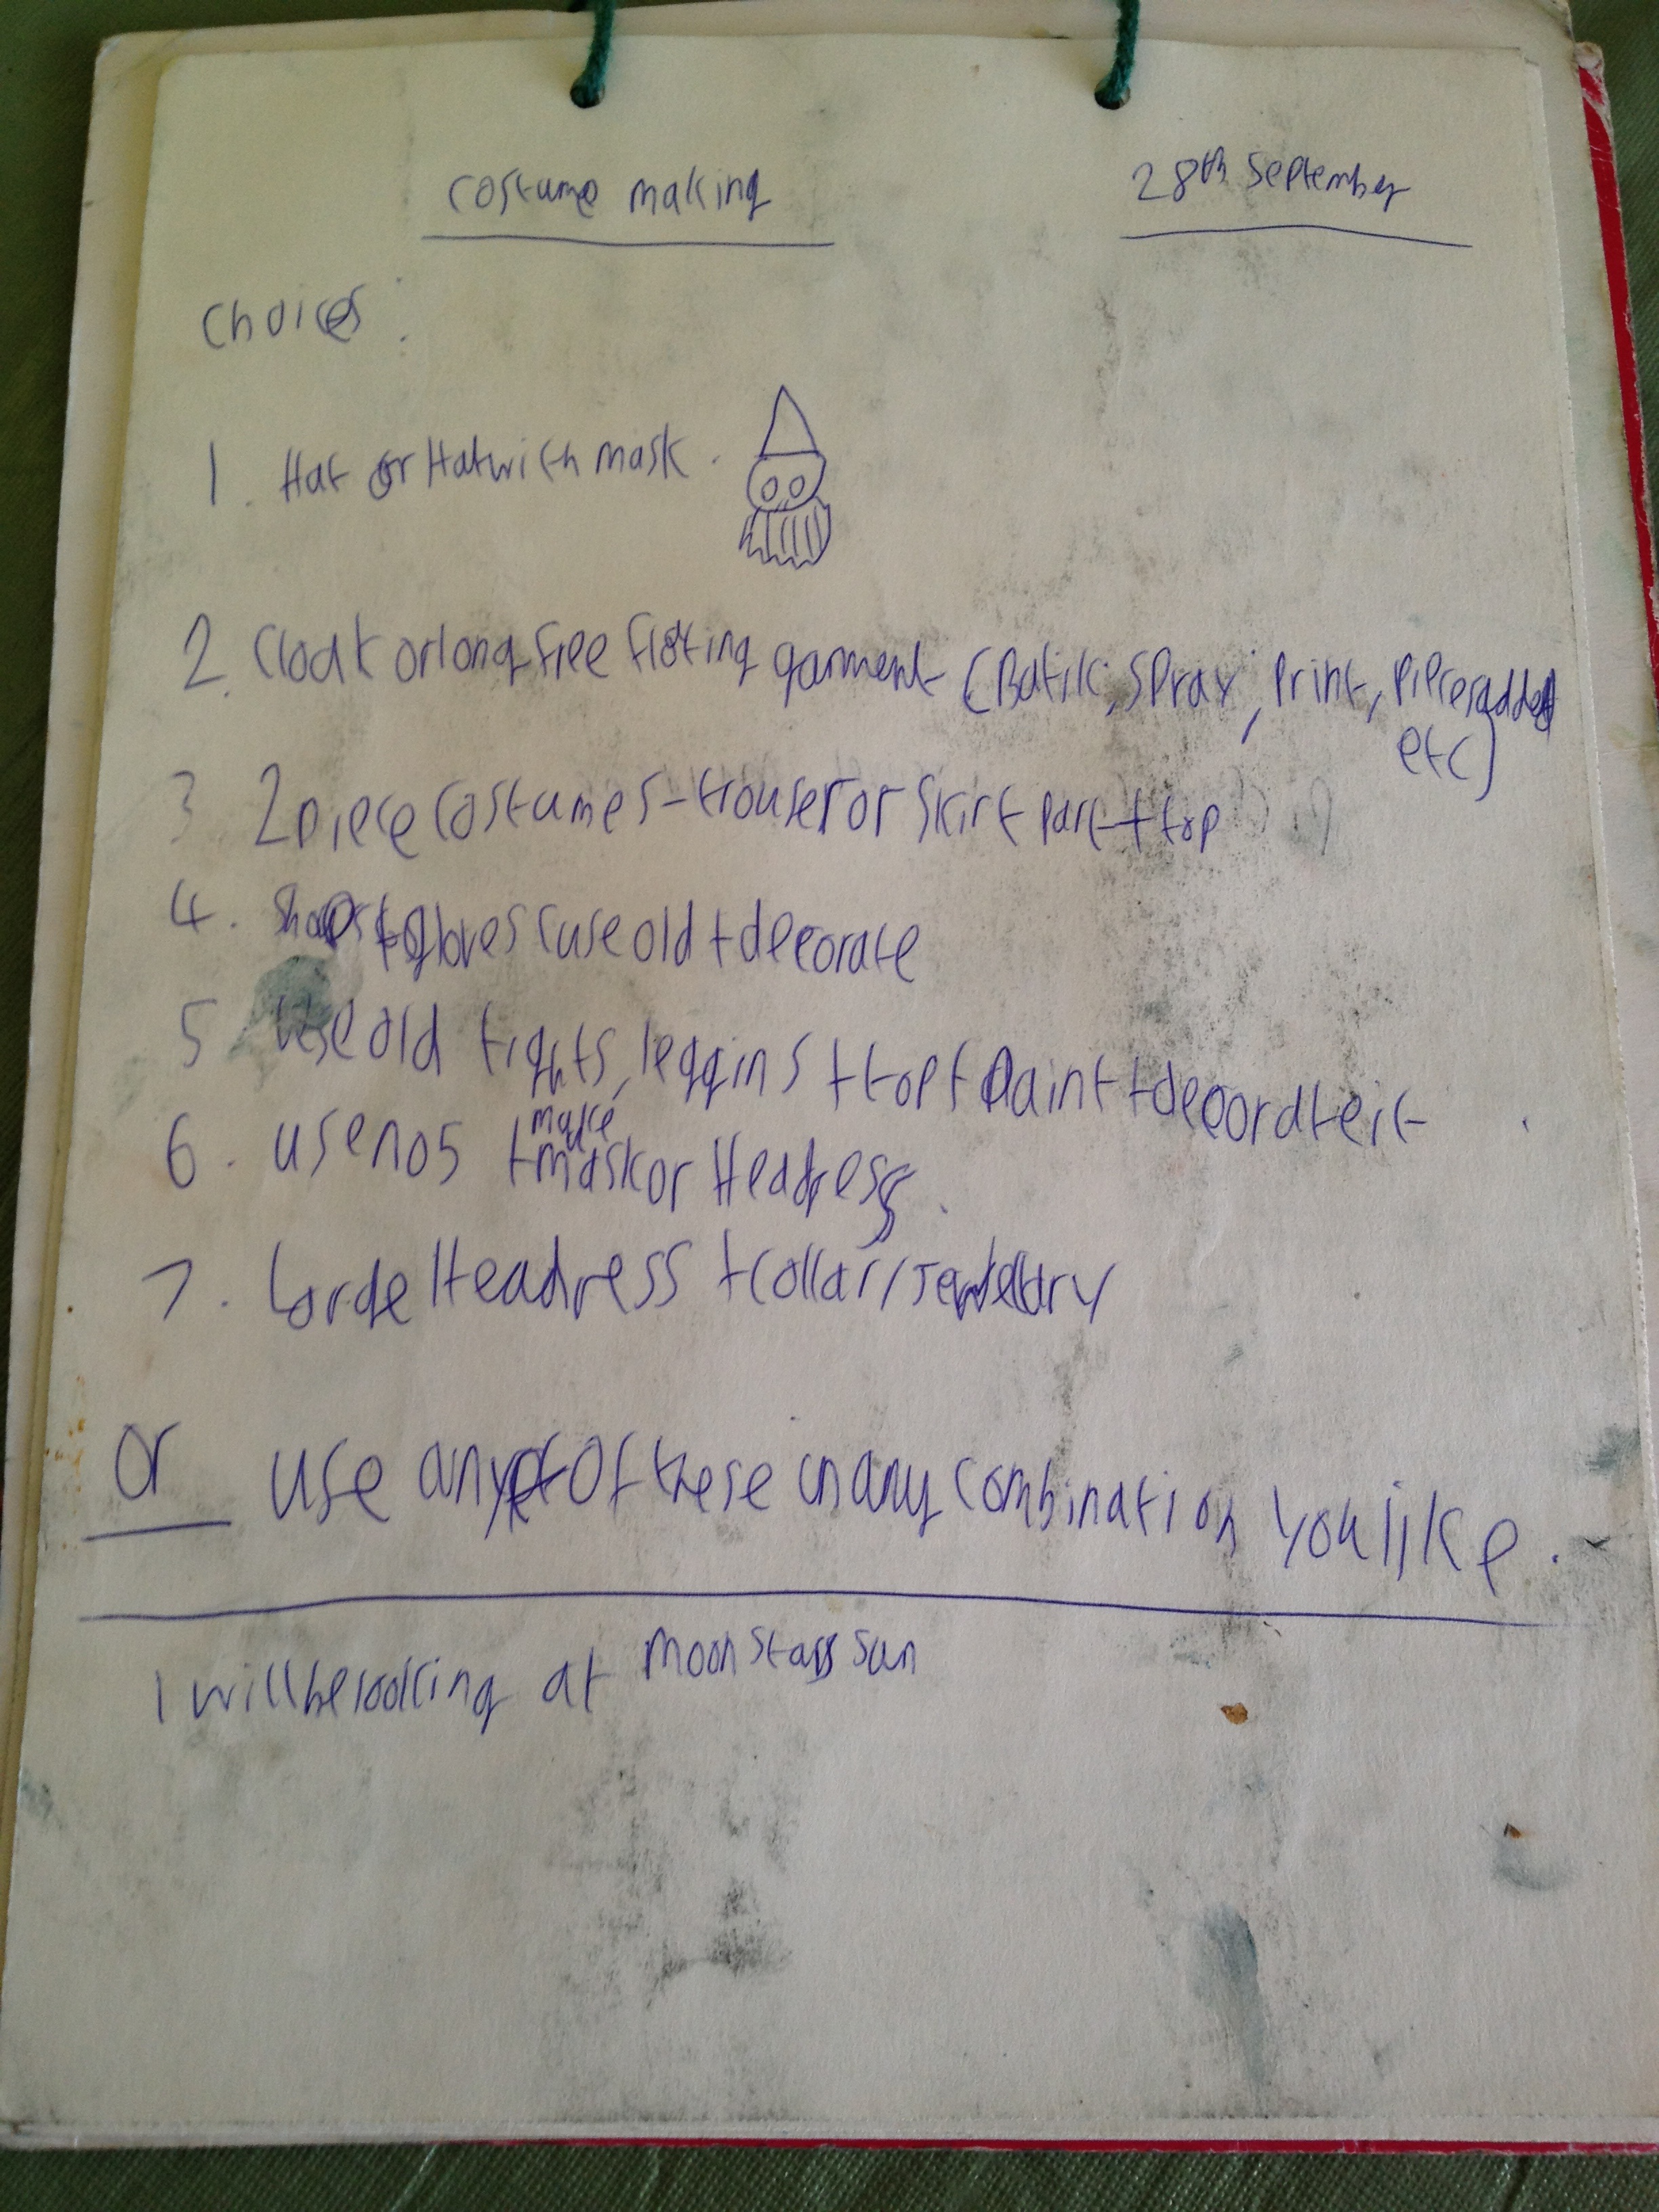 costume making
28th September
Choices:
1. Hat or Hat with mask.
2. Cloak or long free floting garment (Batik, spray, print, pipres added
etc)
3 2 piece costumes - trouser or skirt part + top
4. shoes + gloves (use old + decorate
5 Use old tights, leggins + top + paint + decorate it
6. use no 5 + make mask or Headress.
7. Large Headress + collar/Jewellary
Or use any of these in any combination you like.
I will be looking at moon stars sun